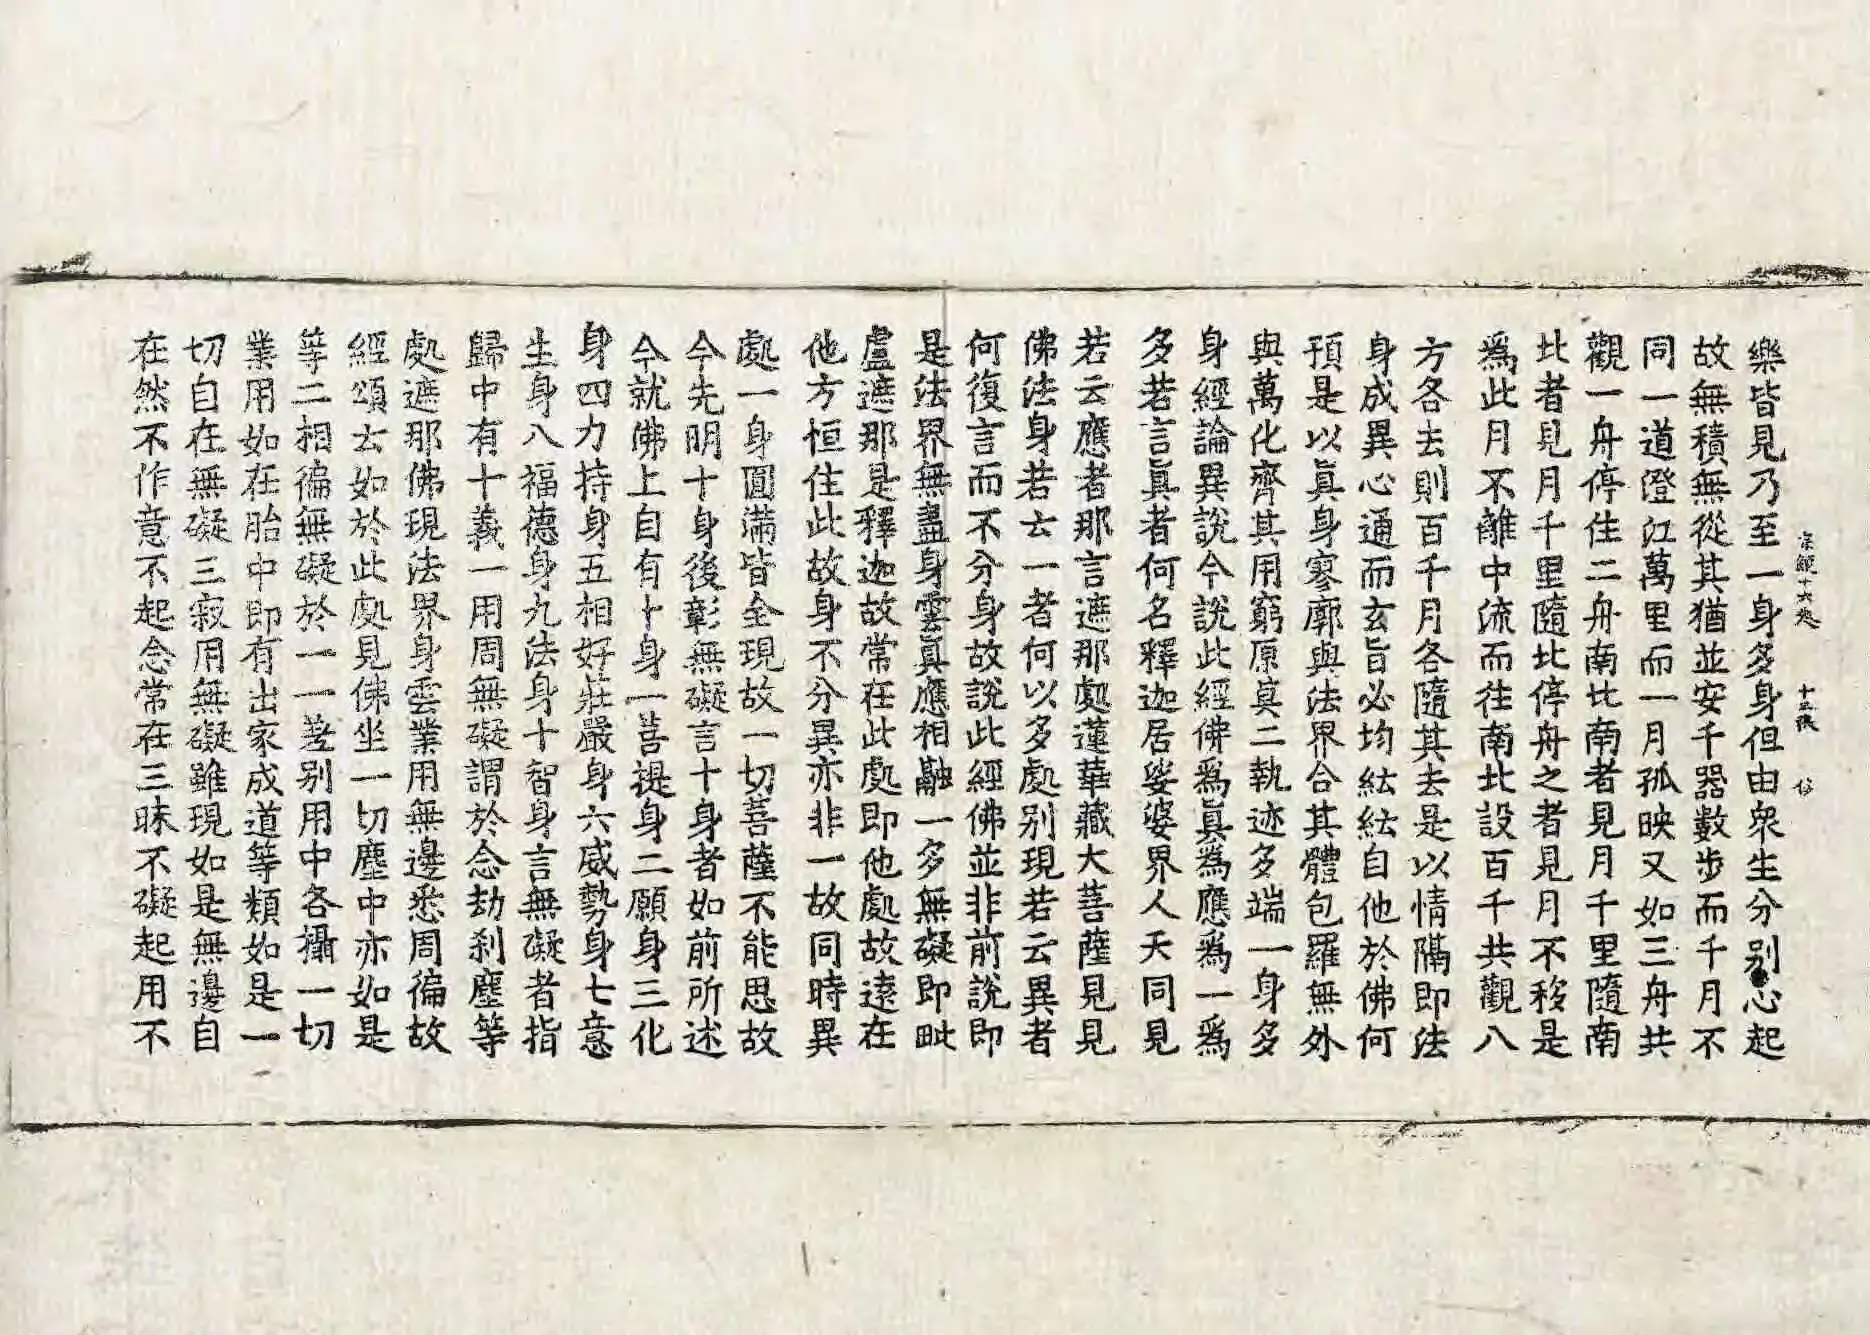 宗鏡十六卷 十三張
樂皆見乃至一身多身但由衆生分别心起
故無積無從其猶並安千器數步而千月不
同一道澄江萬里而一月孤映又如三舟共
觀一舟停住二舟南北南者見月千里隨南
北者見月千里隨北停舟之者見月不移是
爲此月不離中流而往南北設百千共觀八
方各去則百千月各隨其去是以情隔即法
身成異心通而玄旨必均紜紜自他於佛何
預是以眞身寥廓與法界合其體包羅無外
與萬化齊其用窮原眞二執迹多端一身多
身經論異說今説此經佛爲眞為應爲一爲
多若言眞者何名釋迦居娑婆界人天同見
若云應者那言遮那處蓮華藏大菩薩見見
佛法身若云一者何以多處别現若云異者
何復言而不分身故說此經佛並非前說即
是法界無盡身雲眞應相融一多無礙即毗
盧遮那是釋迦故常在此處即他處故遠在
他方恒住此故身不分異亦非一故同時異
處一身圓滿皆全現故一切菩薩不能思故
今先明十身後彰無礙言十身者如前所述
今就佛上自有十身一菩提身二願身三化
身四力持身五相好莊嚴身六威勢身七意
生身八福德身九法身十智身言無礙者指
歸中有十義一用周無礙謂於念劫刹塵等
處遮那佛現法界身雲業用無邊悉周徧故
經頌云如於此處見佛坐一切塵中亦如是
等二相徧無礙於一一差别用中各攝一切
業用如在胎中即有出家成道等類如是一
切自在無礙三寂用無礙雖現如是無邊自
在然不作意不起念常在三昧不礙起用不